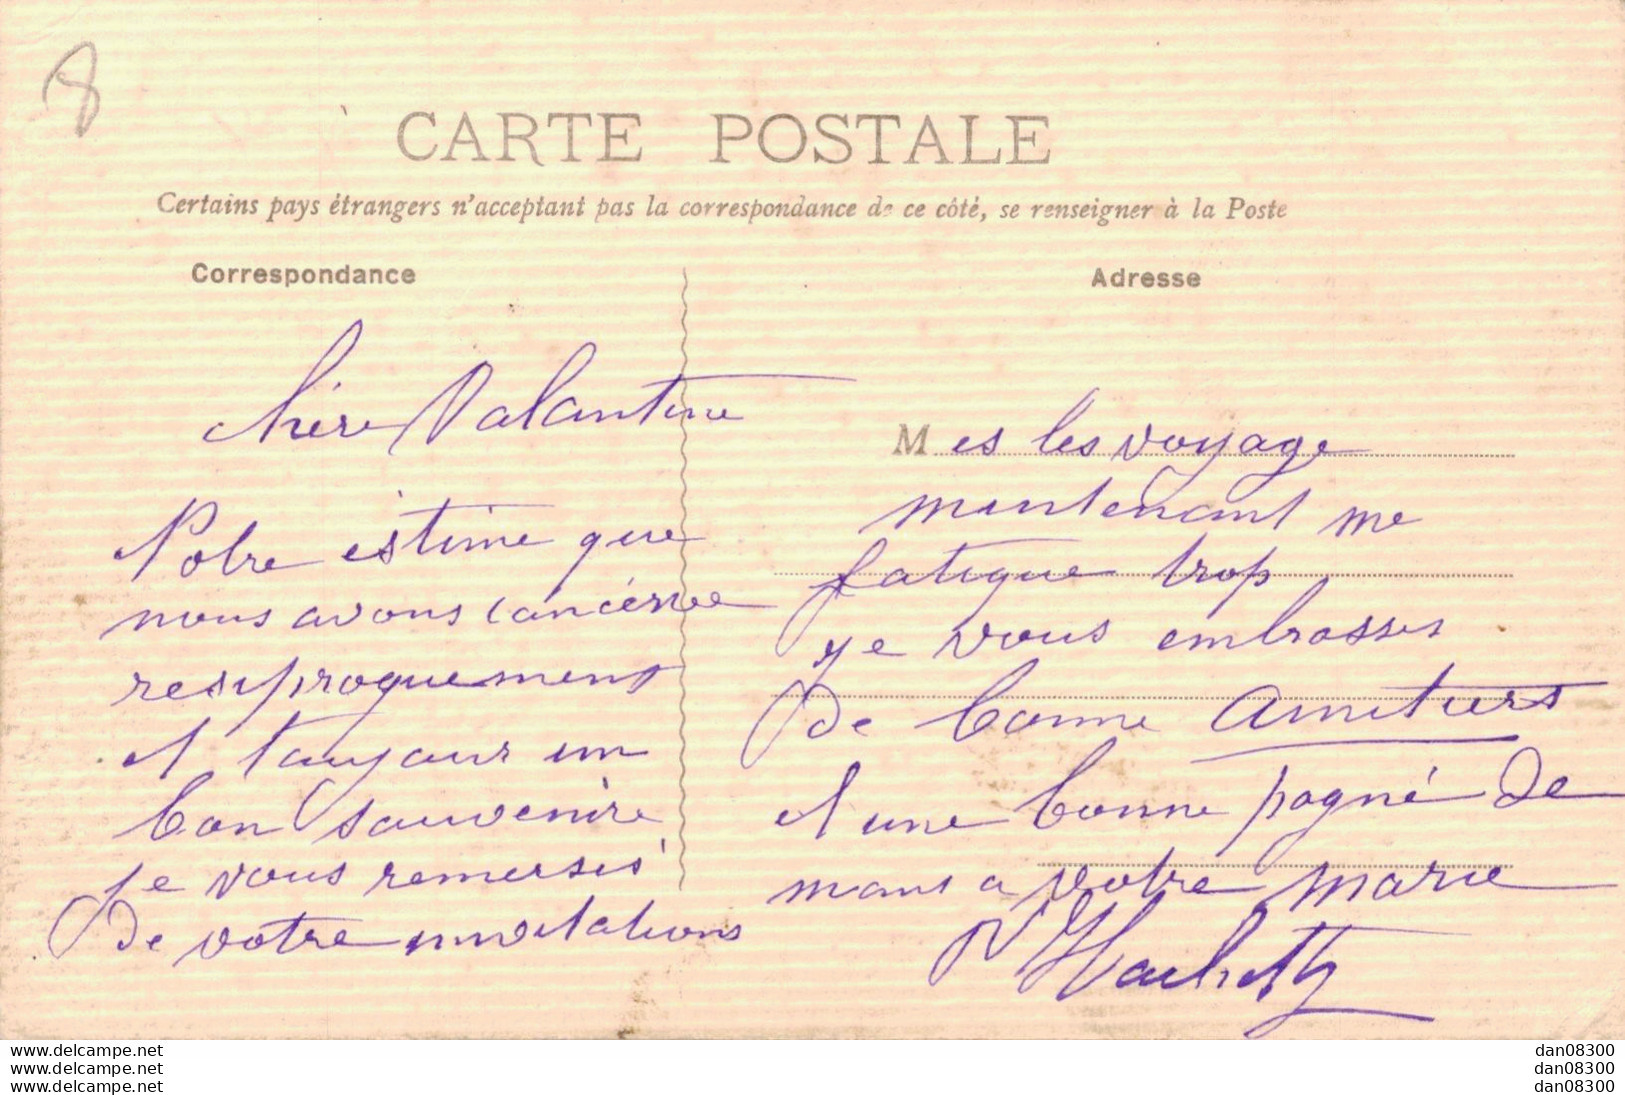 8
CARTE POSTALE
Certains pays étrangers n'acceptant pas la correspondance de ce côté, se renseigner à la Poste
Correspondance
Adresse
chère Valantine
Notre estime que
nous avons concerve
resiproquement
et toujour un
bon souvenire
je vous remersis
de votre invitations
Mes les voyage
mentenant me
fatigue trop
je vous embrasses
de bonne amitiers
et une bonne pogné de
mans a votre marie
www.delcampe.net
www.delcampe.net
www.delcampe.net
dan08300
dan08300
dan08300